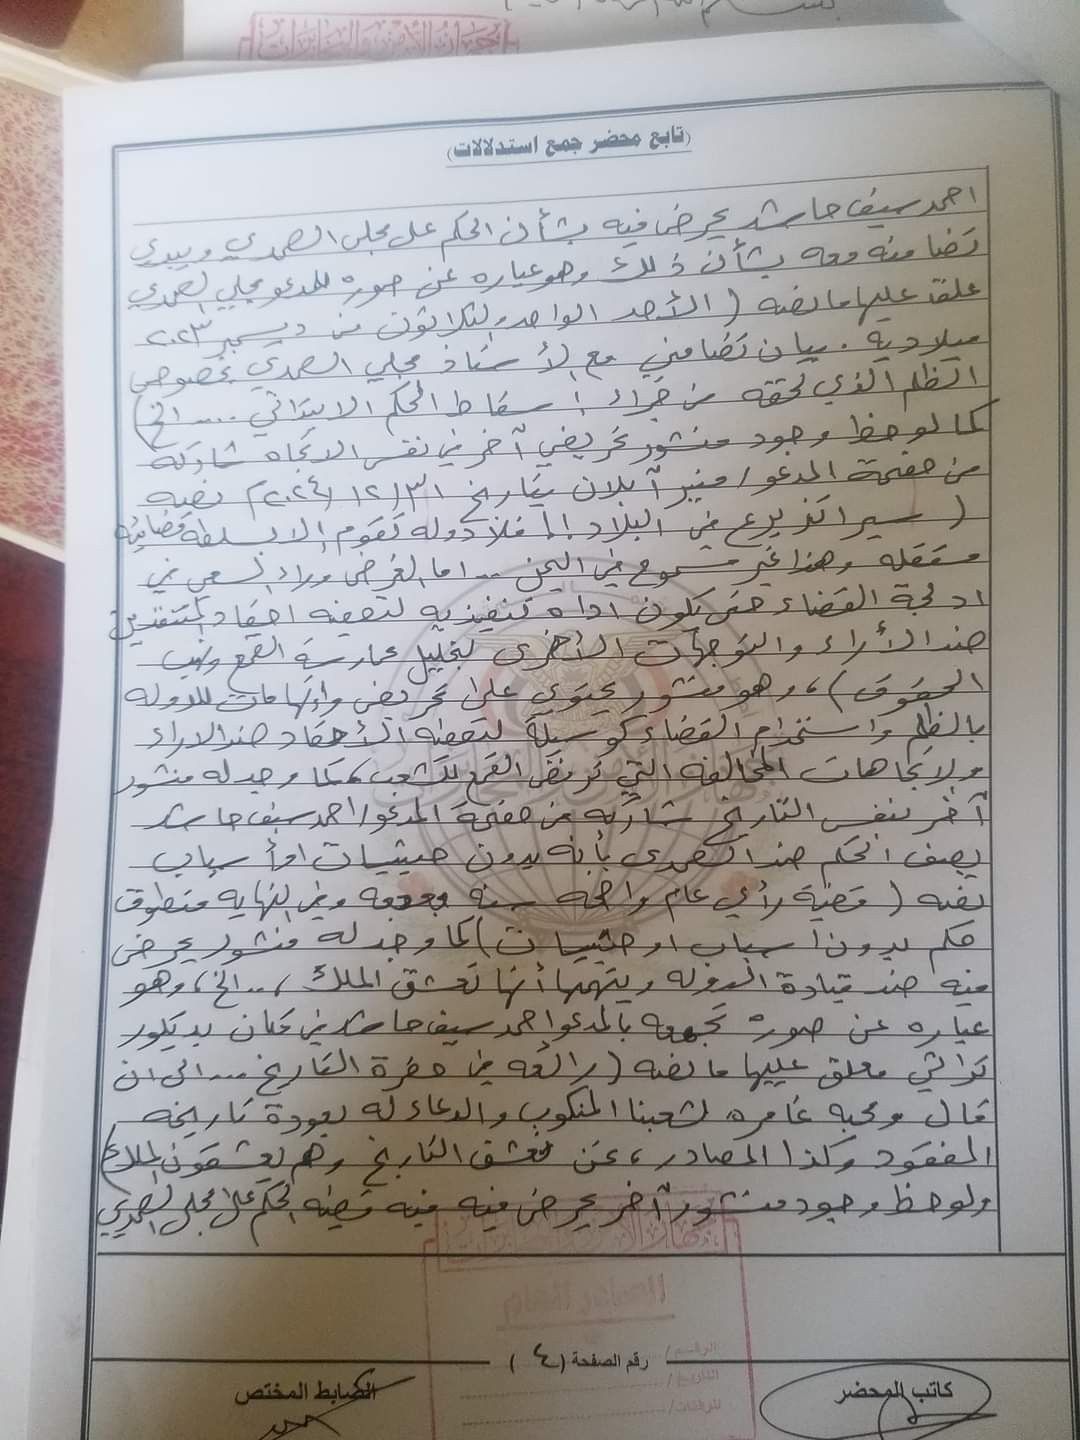 (تابع محضر جمع استدلالات)
احمد سيف حاشد يحرض فيه بشأن الحكم على مجلي الصمدي ويبدي
تضامنه معه بشأن ذلك وهو عباره عن صوره للمدعو مجلي الصمدي
علق عليها ما نصه ( الأحد الواحد والثلاثون من ديسمبر ٢٠٢٣
ميلادية . بيان تضامني مع الأستاذ مجلي الصمدي بخصوص
الظلم الذي لحقه من جراء إسقاط الحكم الابتدائي .... الخ )
كما لوحظ وجود منشور تحريضي آخر في نفس الاتجاه شاركه
من صفحة المدعو/ منير آ بلان بتاريخ ٣١/ ١٢/ ٢٠٢٤م نصه
( سير اكذ يرع في البلاد !! فلا دوله تقوم الا بسلطة قضائية
مستقله وهذا غير مسموح في اليمن ... اما الغرض وراء السعي في
ادلجة القضاء حتى يكون اداه تنفيذيه لتصفيه احقاد المتنفذين
ضد الأراء والتوجهات الأخرى لتحليل ممارسة القمع ونهب
الحقوق ) ، وهو منشور يحتوي على تحريض واتهامات للدوله
بالظلم واستخدام القضاء كوسيلة لتصفيه الأحقاد ضد الاراء
والاتجاهات المخالفه التي ترفض القمع للشعب ، كما وجد له منشور
آخر بنفس التاريخ شاركه من صفحة المدعو/ احمد سيف حاشد
يصف الحكم ضد الصمدي بأنه بدون حيثيات او أسباب
نصه ( قضية رأي عام واضحه سنه وفي النهايه منطوق
حكم بدون أسباب او حيثيات ) كما وجد له منشور يحرض
فيه ضد قيادة الدوله ويتهمها أنها تعشق الملك ، .. الخ ، وهو
عباره عن صورة تجمعه بالمدعو احمد سيف حاشد في مكان بديكور
تراثي معلق عليها ما نصه ( رائعه في حضرة التاريخ .... الى ان
قال ومحبه غامره لشعبنا المنكوب والدعاء له بعودة تاريخه
المفقود وكذا المصادر ، نحن نعشق التاريخ وهم يعشقون الملك )
ولوحظ وجود منشور آخر يحرض فيه فيه قضيه الحكم على مجلي الصمدي
رقم الصفحة ( ٤ )
كاتب المحضر
الضابط المختص